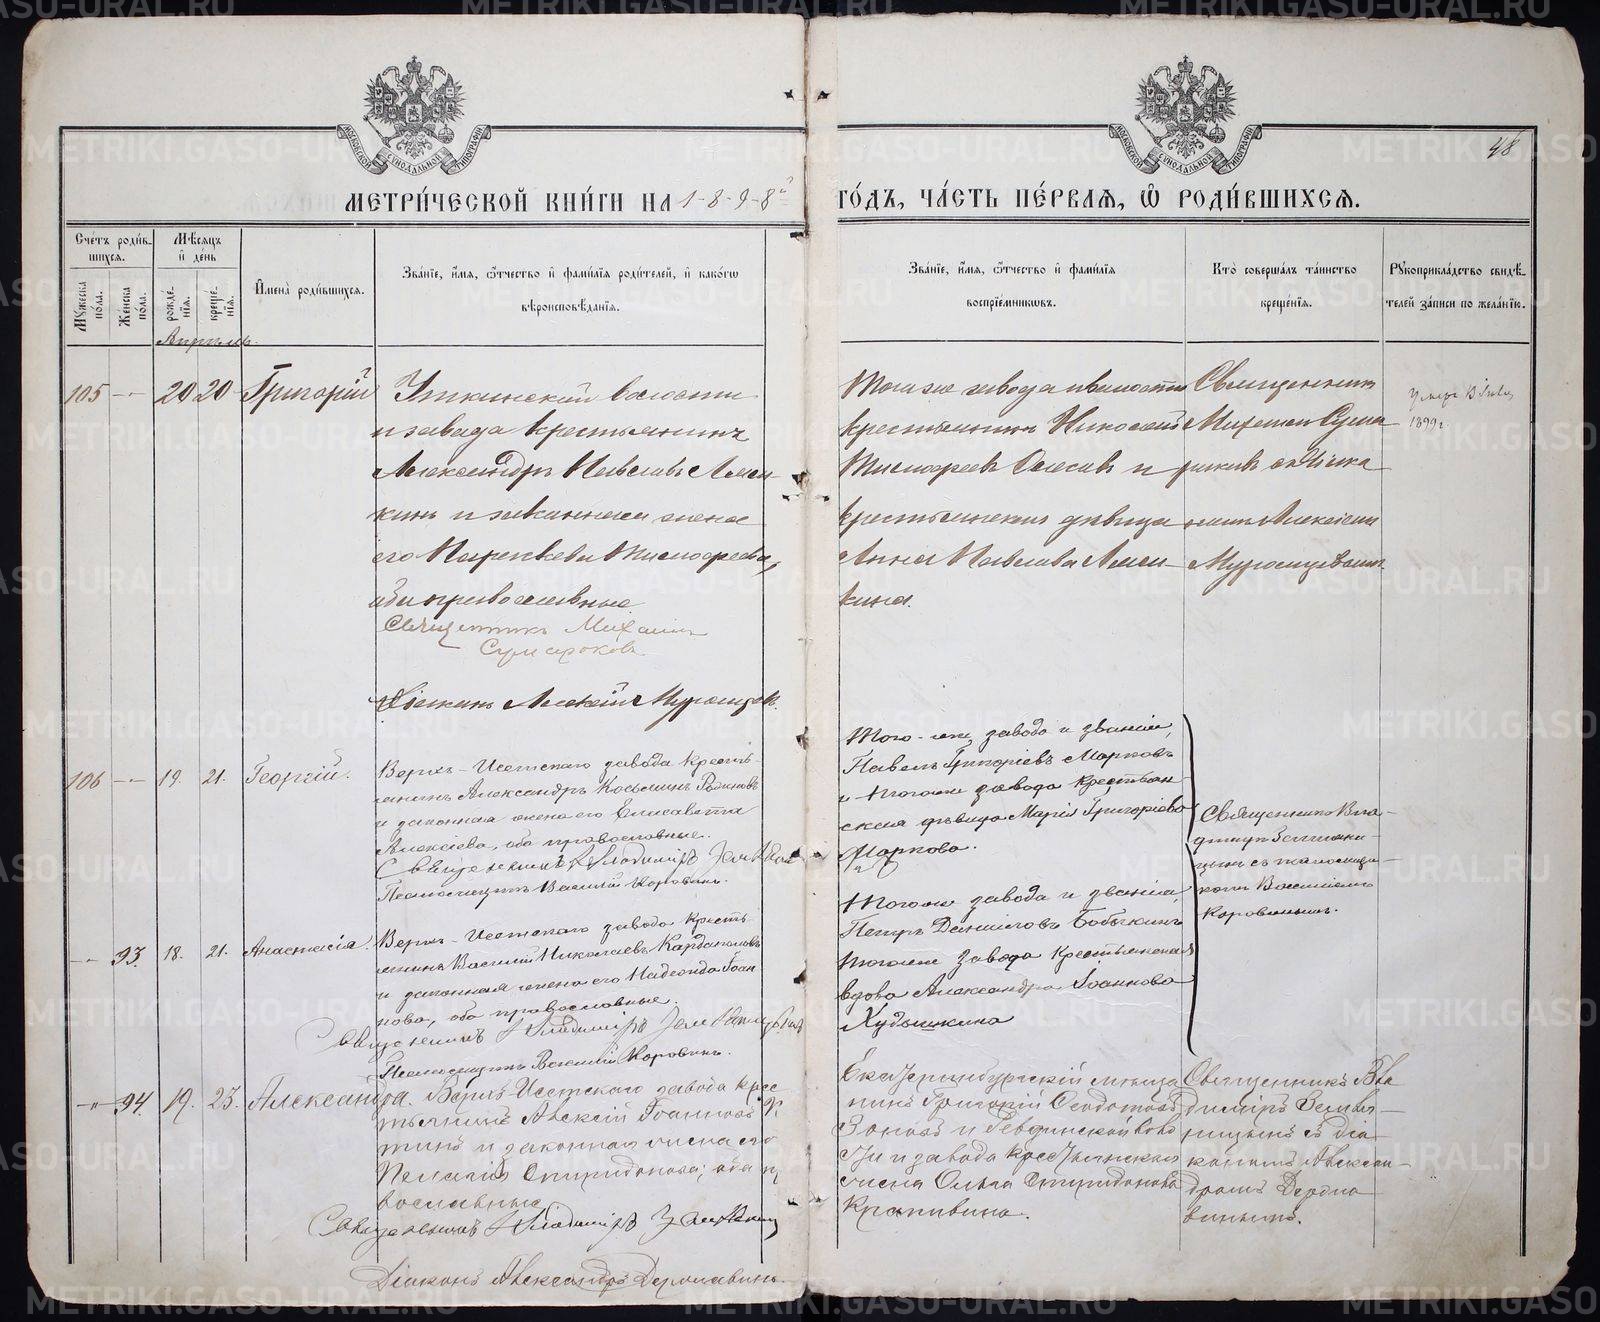 48
МЕТРИ́ЧЕСКОЙ КНИ́ГИ НА 1898й
ГО́ДЪ, ЧА́СТЬ ПЕ́РВАЯ, Ѽ РОДИ́ВШИХСЯ.
Сче́тъ роди́в-
шихся.
Му́жеска по́ла.
Же́нска по́ла.
Мѣ́сяцъ и де́нь
рожде́-нія.
креще́-нія.
Имена̀ роди́вшихся.
Зва́ніе, и́мя, ѻ҆́тчество и҆ фами́лія роди́телей, и҆ како́гѡ
вѣроисповѣ́данія.
Зва́ніе, и́мя, ѻ҆́тчество и҆ фами́лія
воспріе́мниковъ.
Кто̀ соверша́лъ та́инство
креще́нія.
Рукоприкла́дство свидѣ́-
телей за́писи по жела́нію.
Апрѣль.
105 20 20 Григорій
Уткинской волости
и завода крестьянинъ
Александръ Павловъ
и законная жена
его Параскева Тимофеева,
оба православные
Священникъ Михаилъ
Сумароковъ.
Діаконъ Алексѣй
Того же завода и волости
крестьянинъ Николай
Тимофеевъ и
крестьянская дѣвица
Анна Павлова
кина.
Священникъ
Михаилъ Сума-
роковъ съ діако-
номъ Алексѣемъ
1899 г.
106 19. 21. Георгій.
Верхъ-Исетскаго завода кресть-
янинъ Александръ Косьминъ
и законная жена его Елисавета
Алексіева, оба православные.
Священникъ Владиміръ
Псаломщикъ Василій Коровинъ.
Того-же завода и званія,
Павелъ Григоріевъ Марковъ
и тогоже завода крестьян-
ская дѣвица Марія Григоріева
Маркова.
Священникъ Вла-
диміръ Земляни-
цынъ съ псаломщи-
комъ Василіемъ
Коровинымъ.
93. 18. 21. Анастасія.
Верхъ-Исетскаго завода кресть-
янинъ Василій Николаевъ Кардаполовъ
и законная жена его Надежда Іоан-
нова, оба православные.
Священникъ Владиміръ
Псаломщикъ Василій Коровинъ.
Тогоже завода и званія,
Петръ Данииловъ Бобыкинъ
тогоже завода крестьянская
вдова Александра Іоаннова
Худышкина
94. 19. 23. Александра.
Верхъ-Исетскаго завода крес-
тьянинъ Алексій Іоанновъ
и законная жена его
Пелагія Спиридонова; оба
вославные
Священникъ Владиміръ
Діаконъ Александръ Державинъ.
Екатеринбургскій мѣща-
нинъ Григорій Ѳеодотовъ
и Ревдинской воло-
сти и завода крестьянская
жена Ольга Спиридонова
Крапивина.
Священникъ Вла-
диміръ Земля-
ницынъ съ діа-
кономъ Алексан-
дромъ Держа-
винымъ.